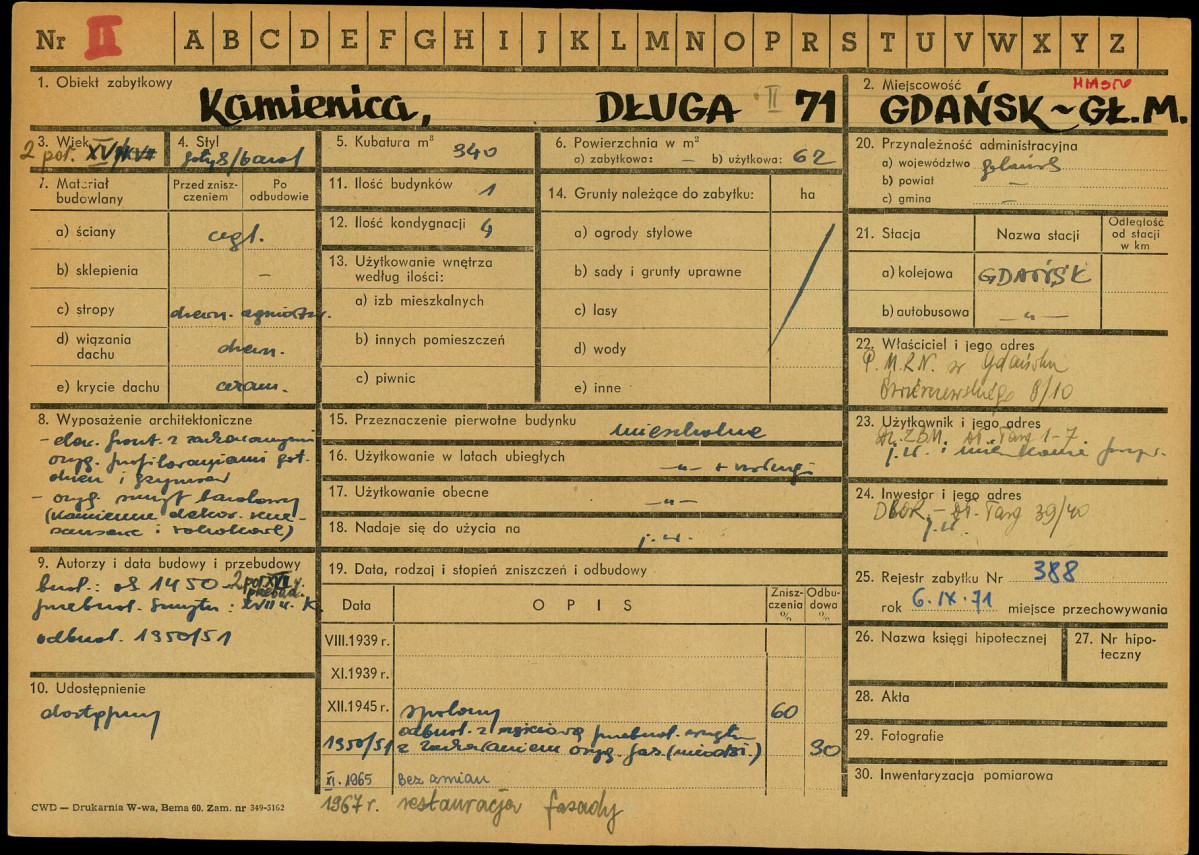 Nr II A B C D E F G H I J K L M N O P R S T U V W X Y Z
1. Obiekt zabytkowy
Kamienica, DŁUGA II 71
2. Miejscowość
GDAŃSK ~ GŁ. M.
3. Wiek
2 poł.
4. Styl
gotyk/barok
5. Kubatura m³ 940
6. Powierzchnia w m²
a) zabytkowa: — b) użytkowa: 62
7. Materiał budowlany
Przed zniszczeniem
Po odbudowie
a) ściany cegł.
b) sklepienia —
c) stropy drewn. ogniotrw.
d) wiązania dachu drewn.
e) krycie dachu ceram.
8. Wyposażenie architektoniczne
- elew. front. z zachowanymi
oryg. profilowaniami got.
- oryg. szczyt barokowy
(kamienne dekor.
9. Autorzy i data budowy i przebudowy
bud.: ok 1450 - 2 poł XVII w. przebud.
przebud. szczytu: XVII w. K.
odbud. 1950/51
10. Udostępnienie
dostępny
11. Ilość budynków 1
12. Ilość kondygnacji 4
13. Użytkowanie wnętrza
według ilości:
a) izb mieszkalnych
b) innych pomieszczeń
c) piwnic
14. Grunty należące do zabytku: ha
a) ogrody stylowe
b) sady i grunty uprawne
c) lasy
d) wody
e) inne
15. Przeznaczenie pierwotne budynku mieszkalne
16. Użytkowanie w latach ubiegłych —„— + usługi
17. Użytkowanie obecne —„—
18. Nadaje się do użycia na j.w.
19. Data, rodzaj i stopień zniszczeń i odbudowy
Data OPIS Zniszczenia % Odbudowa %
VIII.1939 r.
XI.1939 r.
XII.1945 r. spalony 60
1950/51 odbud. z częściową przebud. wnętrz
z zachowaniem oryg. fas. 90
XI. 1965 Bez zmian
1967 r. restauracja fasady
20. Przynależność administracyjna
a) województwo gdańsk
b) powiat —
c) gmina —
21. Stacja Nazwa stacji Odległość od stacji w km
a) kolejowa GDAŃSK
b) autobusowa —„—
22. Właściciel i jego adres
P. M.R.N. w Gdańsku
8/10
23. Użytkownik i jego adres
Targ 1-7
j.w. i mieszkanie pryw.
24. Inwestor i jego adres
DBOR - Dł. Targ 39/40
j.w.
25. Rejestr zabytku Nr 388
rok 6.IX.71 miejsce przechowywania
26. Nazwa księgi hipotecznej
27. Nr hipoteczny
28. Akta
29. Fotografie
30. Inwentaryzacja pomiarowa
CWD — Drukarnia W-wa, Bema 60. Zam. nr 349-5162